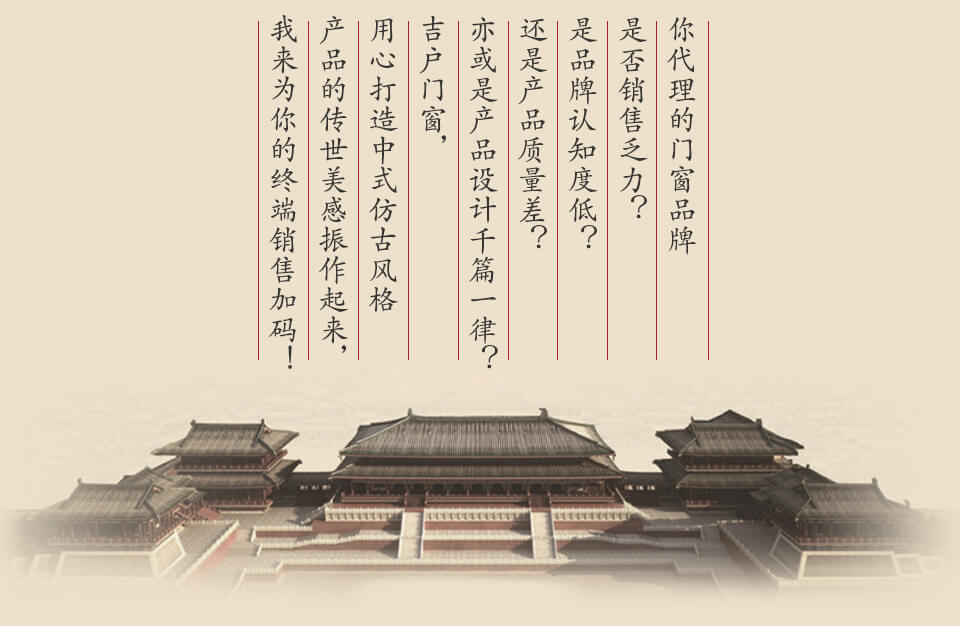 你代理的门窗品牌
是否销售乏力？
是品牌认知度低？
还是产品质量差？
亦或是产品设计千篇一律？
吉户门窗，
用心打造中式仿古风格
产品的传世美感振作起来，
我来为你的终端销售加码！